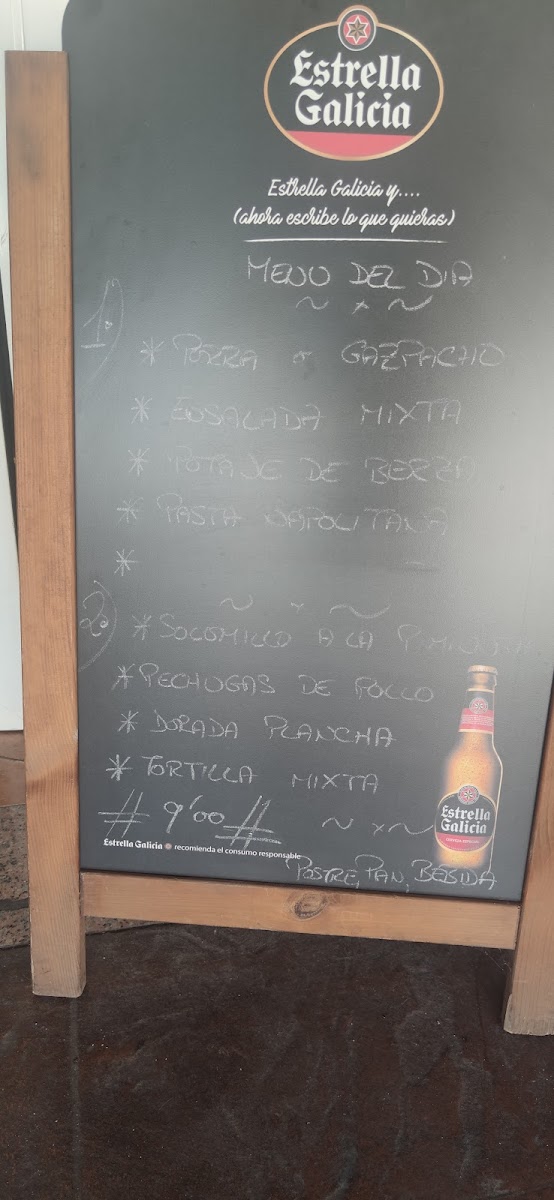 Estrella
Galicia
Estrella Galicia y....
(ahora escribe lo que quieras)
MENU DEL DIA
~ x ~
1º)
* PORRA o GAZPACHO
* ENSALADA MIXTA
* POTAJE DE BERZA
* PASTA NAPOLITANA
*
~ x ~
2º)
* SOLOMILLO A LA PIMIENTA
* PECHUGAS DE POLLO
* DORADA PLANCHA
* TORTILLA MIXTA
# 9'00 #
~ x ~
Estrella
Galicia
Estrella Galicia recomienda el consumo responsable
POSTRE, PAN, BEBIDA